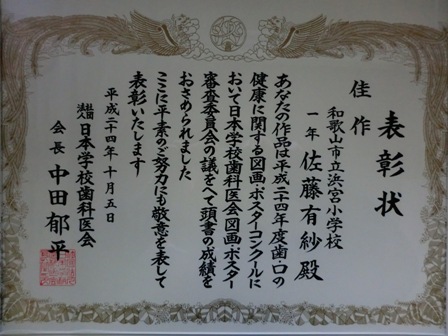 表彰状
佳作
和歌山市立浜宮小学校
一年 佐藤有紗殿
あなたの作品は平成二十四年度歯・口の
健康に関する図画・ポスターコンクールに
おいて日本学校歯科医会図画・ポスター
審査委員会の議をへて頭書の成績を
おさめられました
ここに平素のご努力にも敬意を表して
表彰いたします
平成二十四年十月五日
社団法人日本学校歯科医会
会長 中田郁平